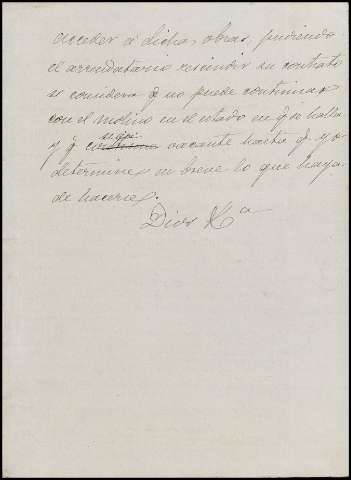 acceder á dichas obras, pudiendo
el arrendatario rescindir su contrato
si considera q no puede continuar
con el molino en el estado en q se halla
y q siga vacante hasta q yo
determine en breve lo que haya
de hacerse.
Dios &a